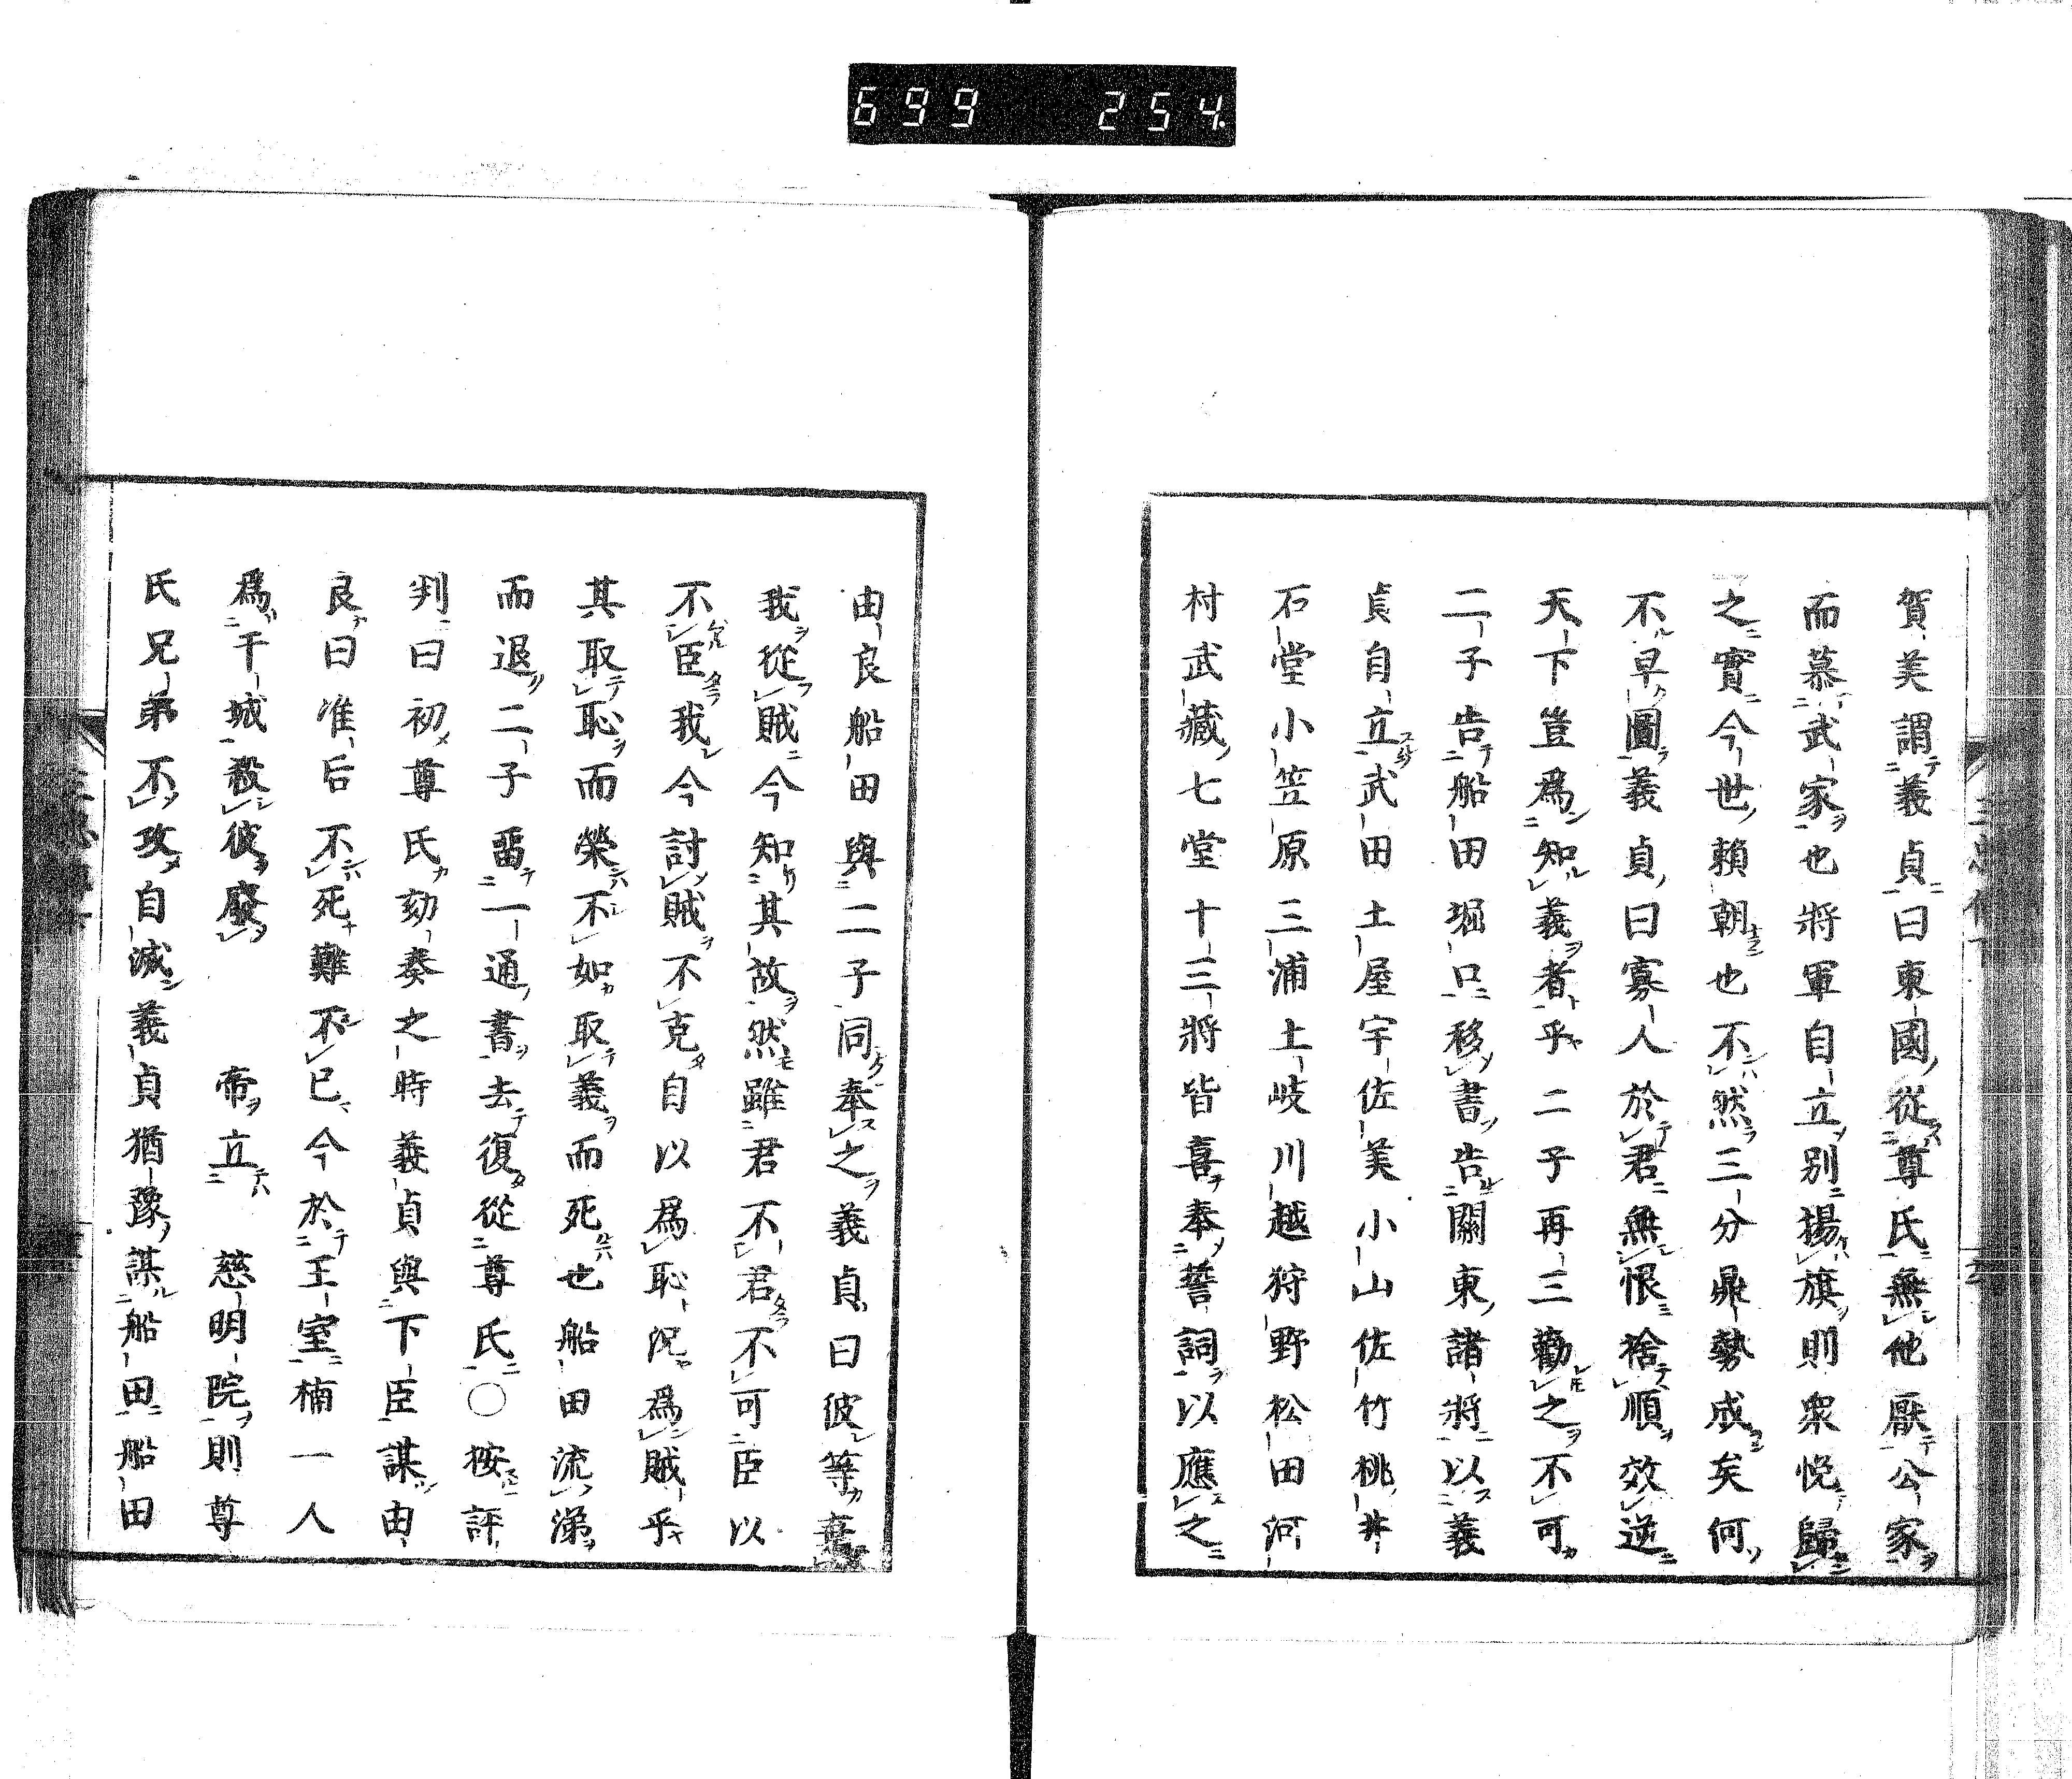 699 254
賀美謂義貞曰東國從尊氏無他厭公家
而慕武家也將軍自立別揚旗則衆悦歸
之實今世頼朝也不然三分鼎勢成矣何
不早圖義貞曰寡人於君無恨捨順效逆
天下豈爲知義者乎二子再三勸之不可
二子告船田堀口移書告關東諸將以義
貞自立武田土屋宇佐美小山佐竹桃井
石堂小笠原三浦土岐川越狩野松田河
村武藏七堂十三將皆喜奉誓詞以應之
由良船田與二子同奉之義貞曰彼等棄
我從賊今知其故然雖君不君不可臣以
不臣我今討賊不克自以爲恥況爲賊乎
其取恥而榮不如取義而死也船田流涕
而退二子畱一通書去復從尊氏○按評
判曰初尊氏劾奏之時義貞與下臣謀由
良曰准后不死難不已今於王室楠一人
爲干城殺彼廢帝立慈明院則尊
氏兄弟不攻自滅義貞猶豫謀船田船田